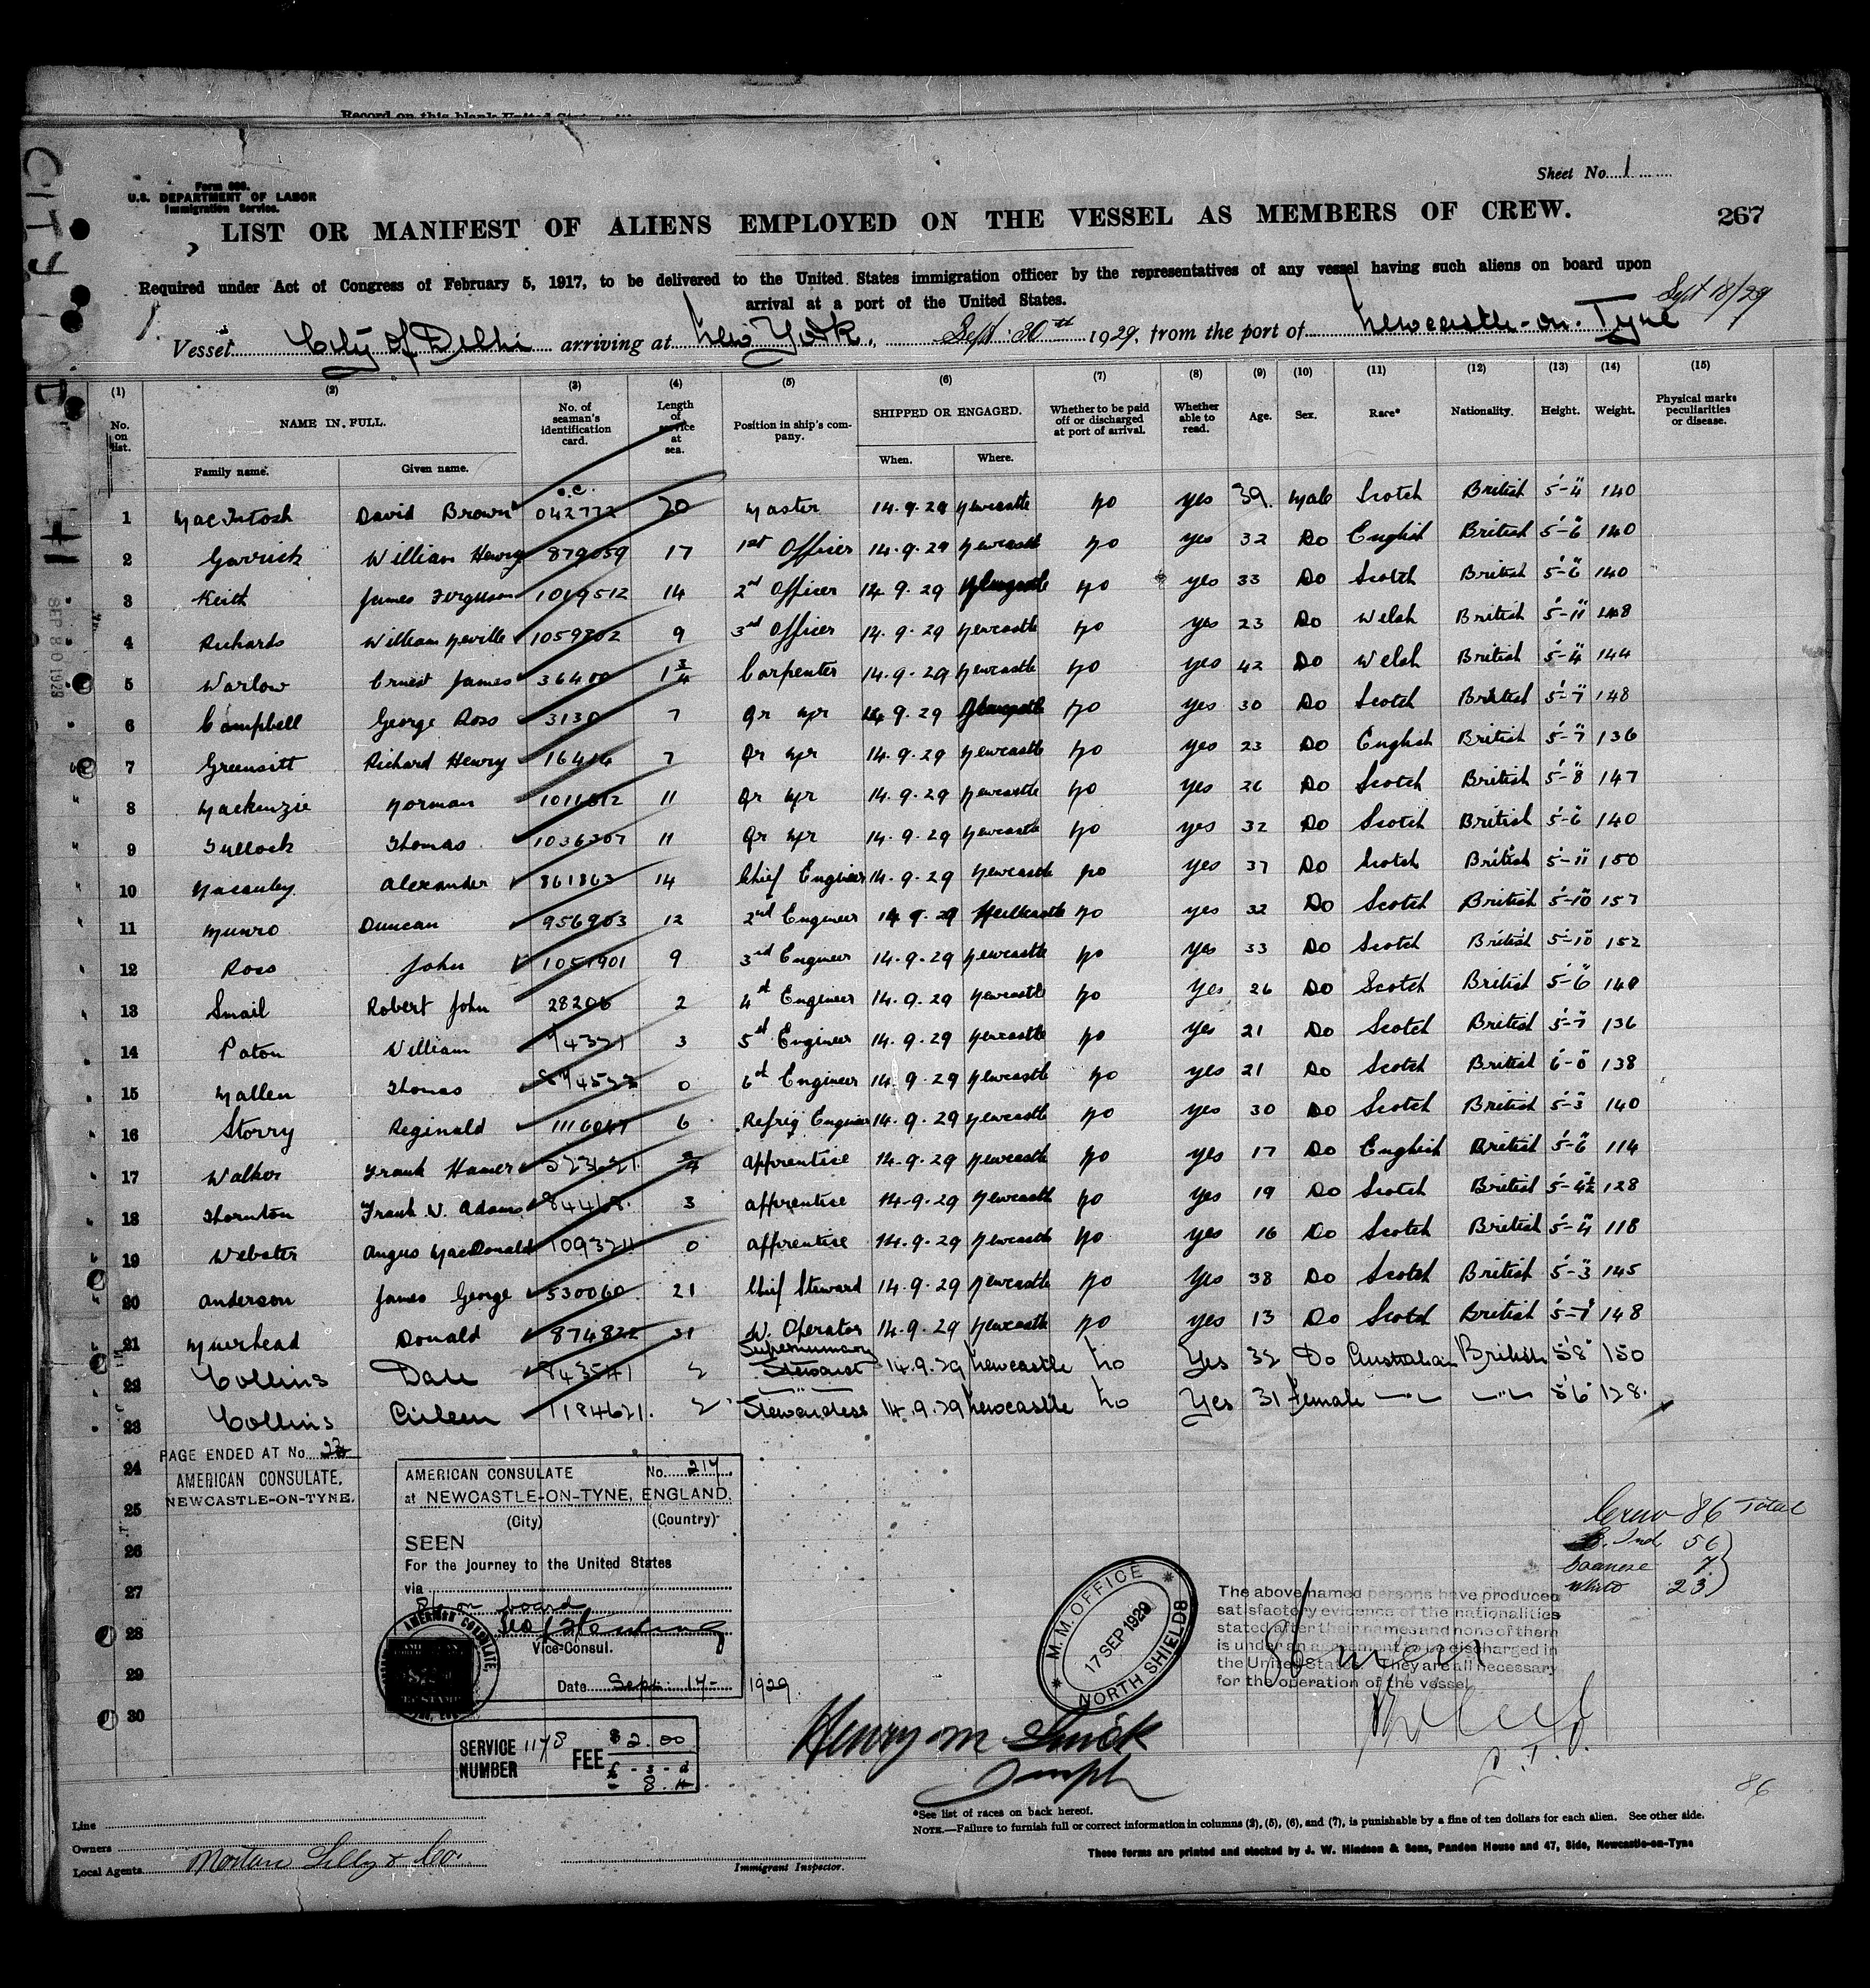 Record on this blank United
Sheet No. 1
Form 680.
U.S. DEPARTMENT OF LABOR
Immigration Service.
LIST OR MANIFEST OF ALIENS EMPLOYED ON THE VESSEL AS MEMBERS OF CREW.
267
Required under Act of Congress of February 5, 1917, to be delivered to the United States immigration officer by the representatives of any vessel having such aliens on board upon
arrival at a port of the United States.
Sept 18/29
Vessel City of Delhi arriving at New York, Sept 30th 1929, from the port of Newcastle-on-Tyne
(1) (2) (3) (4) (5) (6) (7) (8) (9) (10) (11) (12) (13) (14) (15)
No. on list. NAME IN FULL. No. of seaman's identification card. Length of service at sea. Position in ship's company. SHIPPED OR ENGAGED. Whether to be paid off or discharged at port of arrival. Whether able to read. Age. Sex. Race* Nationality. Height. Weight. Physical marks peculiarities or disease.
Family name. Given name. When. Where.
1 MacIntosh David Brown o.c. 042772 20 Master 14.9.29 Newcastle No Yes 39 Male Scotch British 5'-4" 140
2 Garrick William Henry 879059 17 1st Officer 14.9.29 Newcastle No Yes 32 Do English British 5'-6" 140
3 Keith James Ferguson 1019512 14 2nd Officer 14.9.29 No Yes 33 Do Scotch British 5'-6" 140
4 Richards William Neville 1059802 9 3rd Officer 14.9.29 Newcastle No Yes 23 Do Welsh British 5'-11" 148
5 Warlow Ernest James 36400 1 3/4 Carpenter 14.9.29 Newcastle No Yes 42 Do Welsh British 5'-4" 144
6 Campbell George Ross 3130 7 Qr Mr 14.9.29 No Yes 30 Do Scotch British 5'-7" 148
7 Greensitt Richard Henry 16414 7 Qr Mr 14.9.29 Newcastle No Yes 23 Do English British 5'-7" 136
8 Mackenzie Norman 1011612 11 Qr Mr 14.9.29 Newcastle No Yes 26 Do Scotch British 5'-8" 147
9 Tullock Thomas 1036307 11 Qr Mr 14.9.29 Newcastle No Yes 32 Do Scotch British 5'-6" 140
10 Macauley Alexander 861863 14 Chief Engineer 14.9.29 Newcastle No Yes 37 Do Scotch British 5'-11" 150
11 Munro Duncan 956903 12 2nd Engineer 14.9.29 Newcastle No Yes 32 Do Scotch British 5'-10" 157
12 Ross John 1051901 9 3rd Engineer 14.9.29 Newcastle No Yes 33 Do Scotch British 5'-10" 152
13 Smail Robert John 28206 2 4th Engineer 14.9.29 Newcastle No Yes 26 Do Scotch British 5'-6" 140
14 Paton William 94321 3 5th Engineer 14.9.29 Newcastle No Yes 21 Do Scotch British 5'-7" 136
15 Mallen Thomas 0 6th Engineer 14.9.29 Newcastle No Yes 21 Do Scotch British 6'-0" 138
16 Storry Reginald 6 Refrig Engineer 14.9.29 Newcastle No Yes 30 Do Scotch British 5'-3" 140
17 Walker Frank Hamer 3/4 Apprentice 14.9.29 Newcastle No Yes 17 Do English British 5'-6" 114
18 Thornton Frank W. Adams 3 Apprentice 14.9.29 Newcastle No Yes 19 Do Scotch British 5'-4½ 128
19 Webster Angus MacDonald 1093211 0 Apprentice 14.9.29 Newcastle No Yes 16 Do Scotch British 5'-4" 118
20 Anderson James George 530060 21 Chief Steward 14.9.29 Newcastle No Yes 38 Do Scotch British 5'-3" 145
21 Muirhead Donald 874822 31 W. Operator 14.9.29 Newcastle No Yes 13 Do Scotch British 5'-7" 148
22 Collins Dale 2 Supernumary Steward 14.9.29 Newcastle No Yes 32 Do Australian British 5'8" 150
23 Collins Eileen 1184621. 2 Stewardess 14.9.29 Newcastle No Yes 31 Female —"— —"— 5'6" 128.
PAGE ENDED AT No. 23
AMERICAN CONSULATE,
NEWCASTLE-ON-TYNE.
24
25
26
27
28
29
30
AMERICAN CONSULATE No. 217
at NEWCASTLE-ON-TYNE, ENGLAND.
(City) (Country)
SEEN
For the journey to the United States
via
on board
Vice-Consul.
Date Sept. 17- 1929
AMERICAN CONSULATE,
SERVICE NUMBER 1178 FEE $2.00
£ - s - d
- 8. 4
M.M. OFFICE
17 SEP 1929
NORTH SHIELDS
Crew 86 Total
B. Ind 56
Goanese 7
White 23
The above named persons have produced
satisfactory evidence of the nationalities
stated after their names and none of them
is under an agreement to be discharged in
the United States. They are all necessary
for the operation of the vessel
Henry M
86
*See list of races on back hereof.
NOTE.—Failure to furnish full or correct information in columns (2), (5), (6), and (7), is punishable by a fine of ten dollars for each alien. See other side.
Line
Owners
Local Agents Morton Lilly & Co.
Immigrant Inspector.
These forms are printed and stocked by J. W. Hindson & Sons, Pandon House and 47, Side, Newcastle-on-Tyne